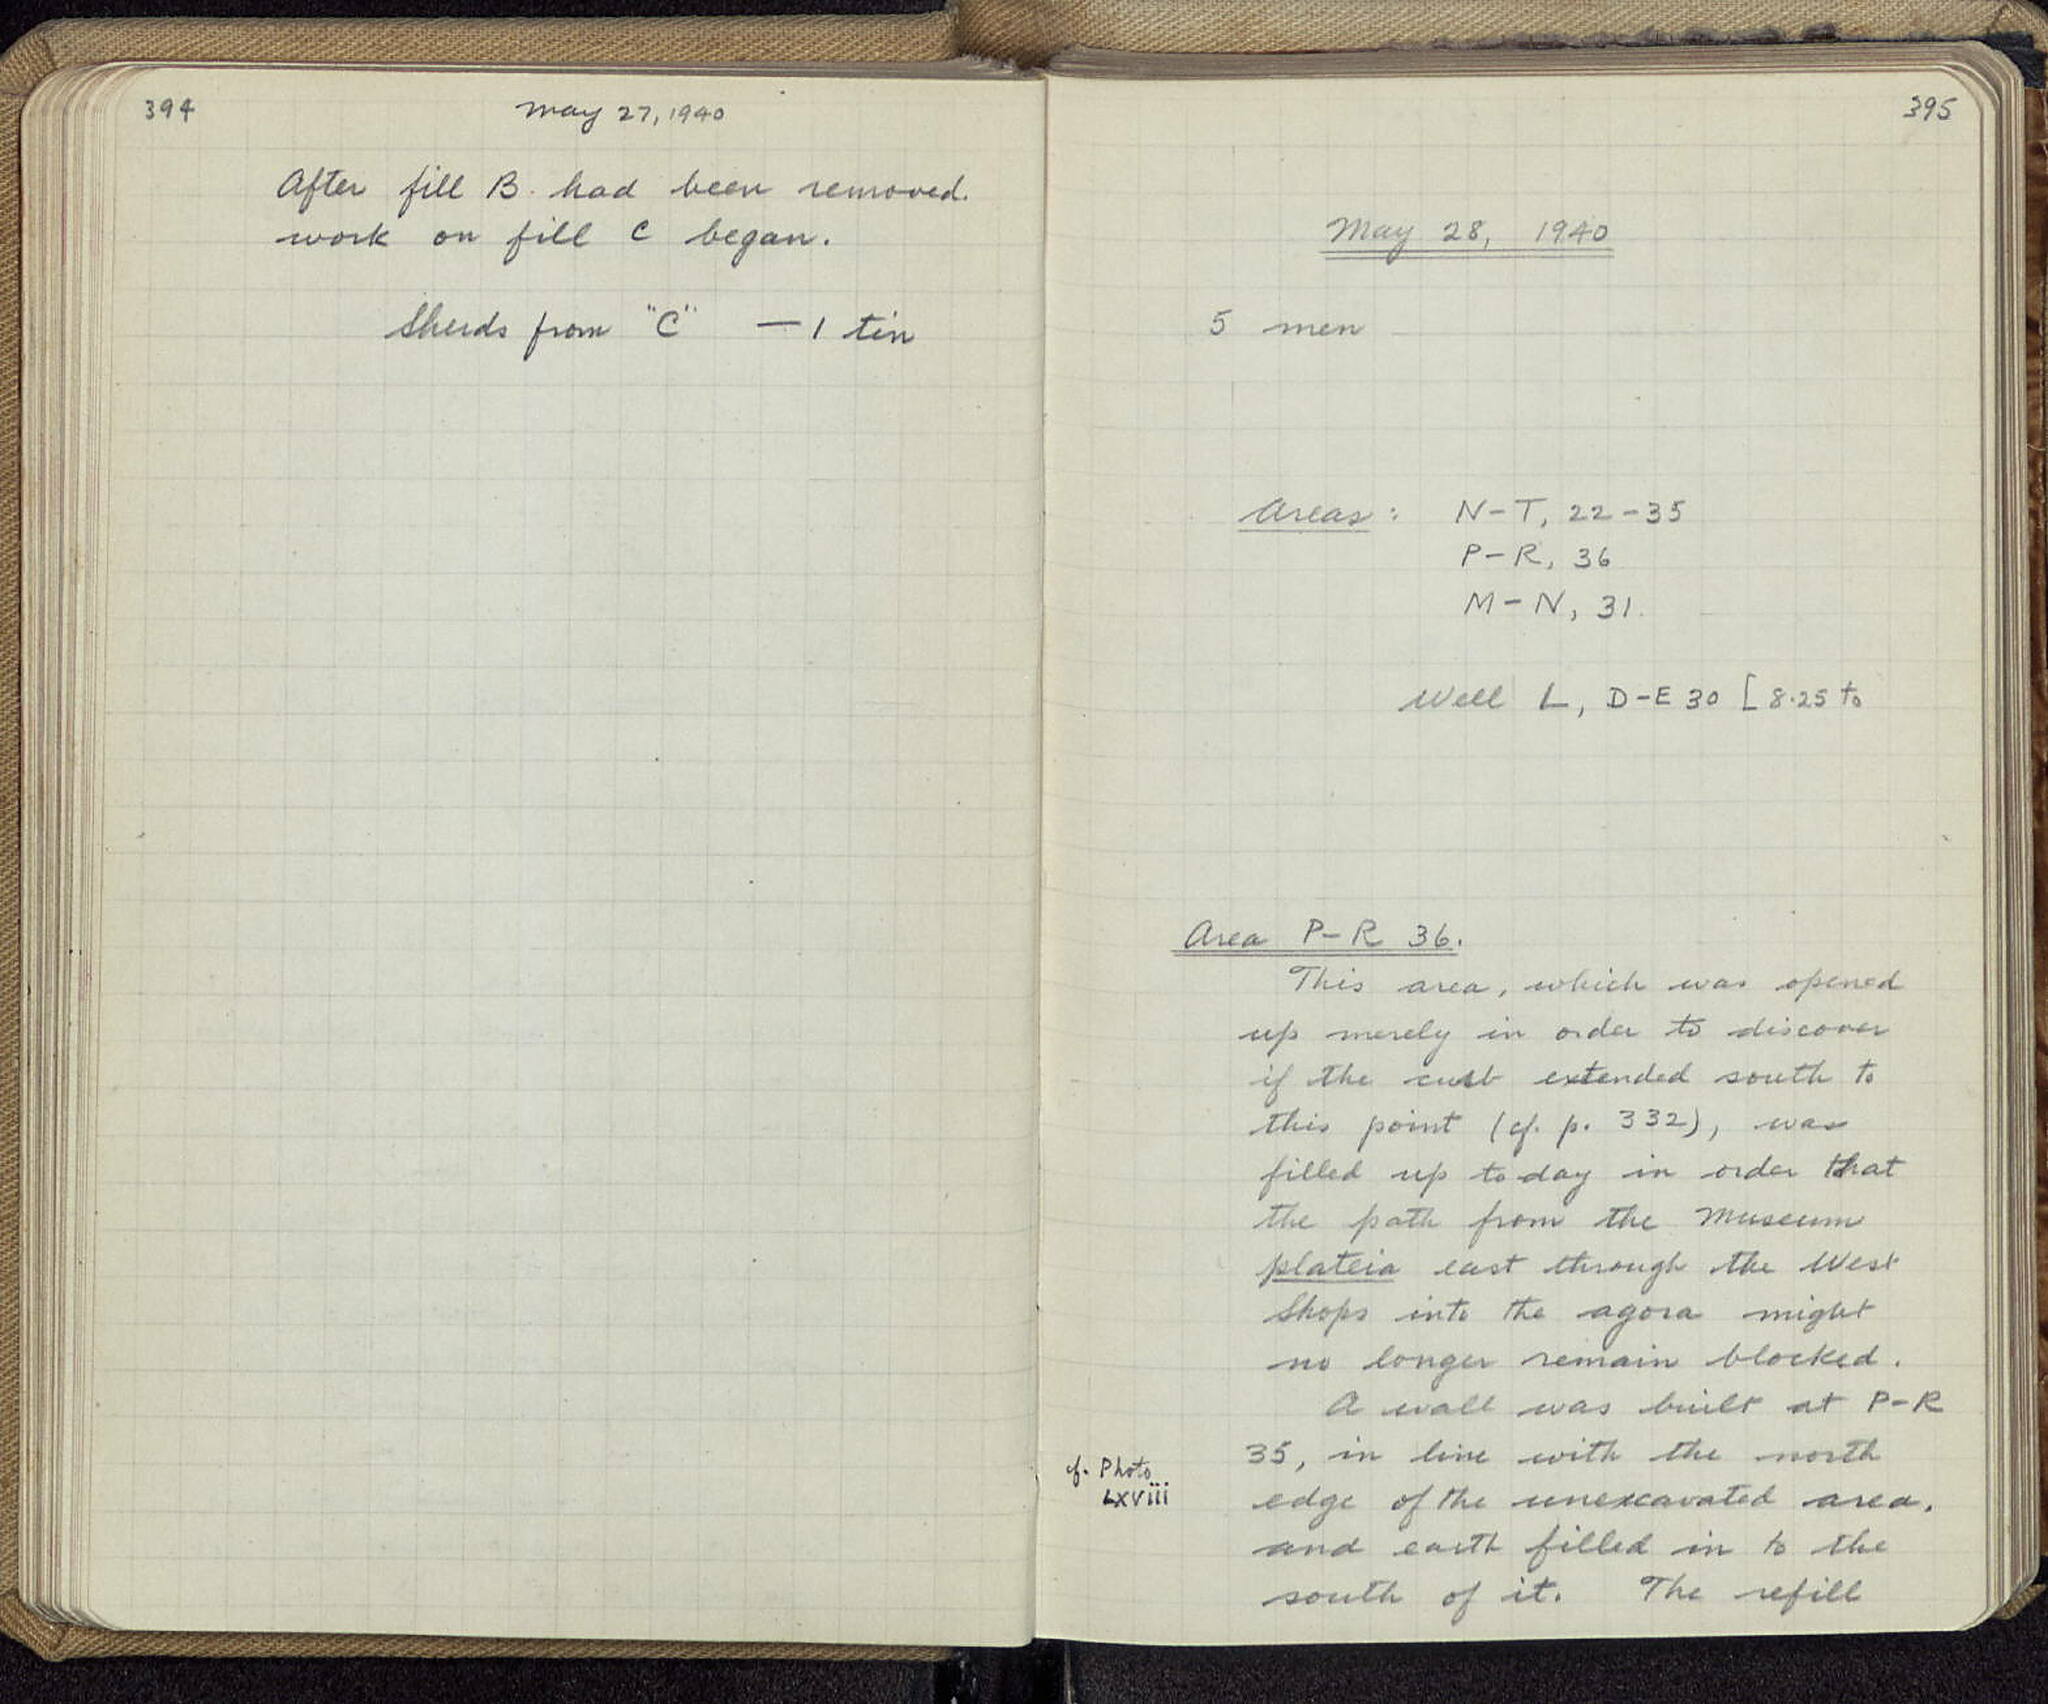 394
May 27, 1940
After fill B had been removed.
work on fill C began.
Sherds from "C" — 1 tin
395
May 28, 1940
5 men
Areas: N-T, 22-35
P-R, 36
M-N, 31.
Well L, D-E 30 [8.25 to
Area P-R 36.
This area, which was opened
up merely in order to discover
if the curb extended south to
this point (cf. p. 332), was
filled up today in order that
the path from the Museum
plateia east through the West
Shops into the agora might
no longer remain blocked.
A wall was built at P-R
35, in line with the north
cf. Photo
LXViii
edge of the unexcavated area,
and earth filled in to the
south of it. The refill